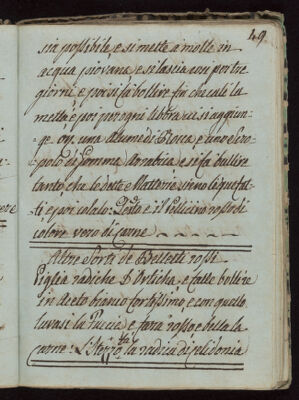 49
sia possibile, e si mette a molle in
acqua piovana e si lascia così per tre
giorni e poi si fa bollire fin che cale la
metta e poi per ogni libbra vi si aggiun-
ge onz. una Alume di Rocca e uno Scro-
polo di Gomma Arrabica e si fa bollire
tanto, che le dette Matterie sieno liquefat-
ti e poi colalo: Questo è il rosso di
colore vero di carne
Altre Sorti de Belletti rossi
Piglia radiche D Orticha, e falle bollire
in Aceto bianco fortissimo e con quello
lavasi la faccia e fara rosso e bella la
carne: la radica di celidonia